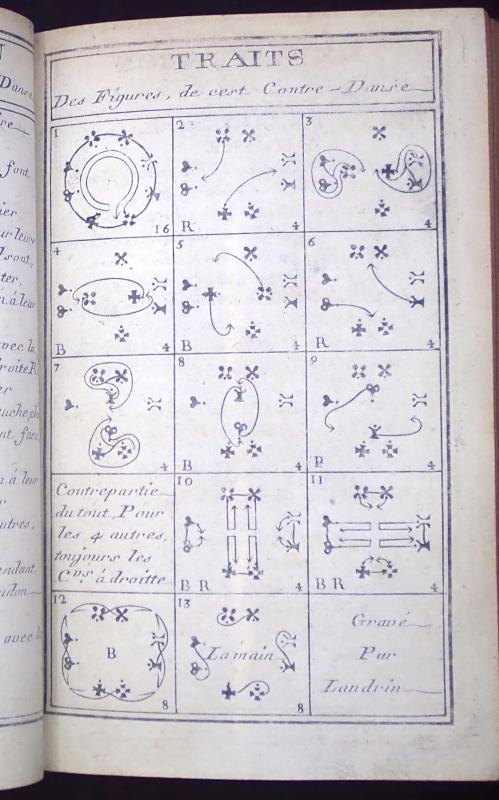 TRAITS
Des Figures, de cest Contre-Danse
1
16
2
R
4
3
4
4
B
4
5
B
4
6
R
4
7
4
8
B
4
9
R
4
Contrepartie
du tout, Pour
les 4 autres,
toujours les
Crs à droitte
10
B R
4
11
B R
4
12
B
8
13
La main
8
Gravé
Par
Landrin
N
Dance
font
ier
ur leur
sont,
ter,
à leur
avec le
droite R
er
nt face
à leur
r
utres,
endant
avec la